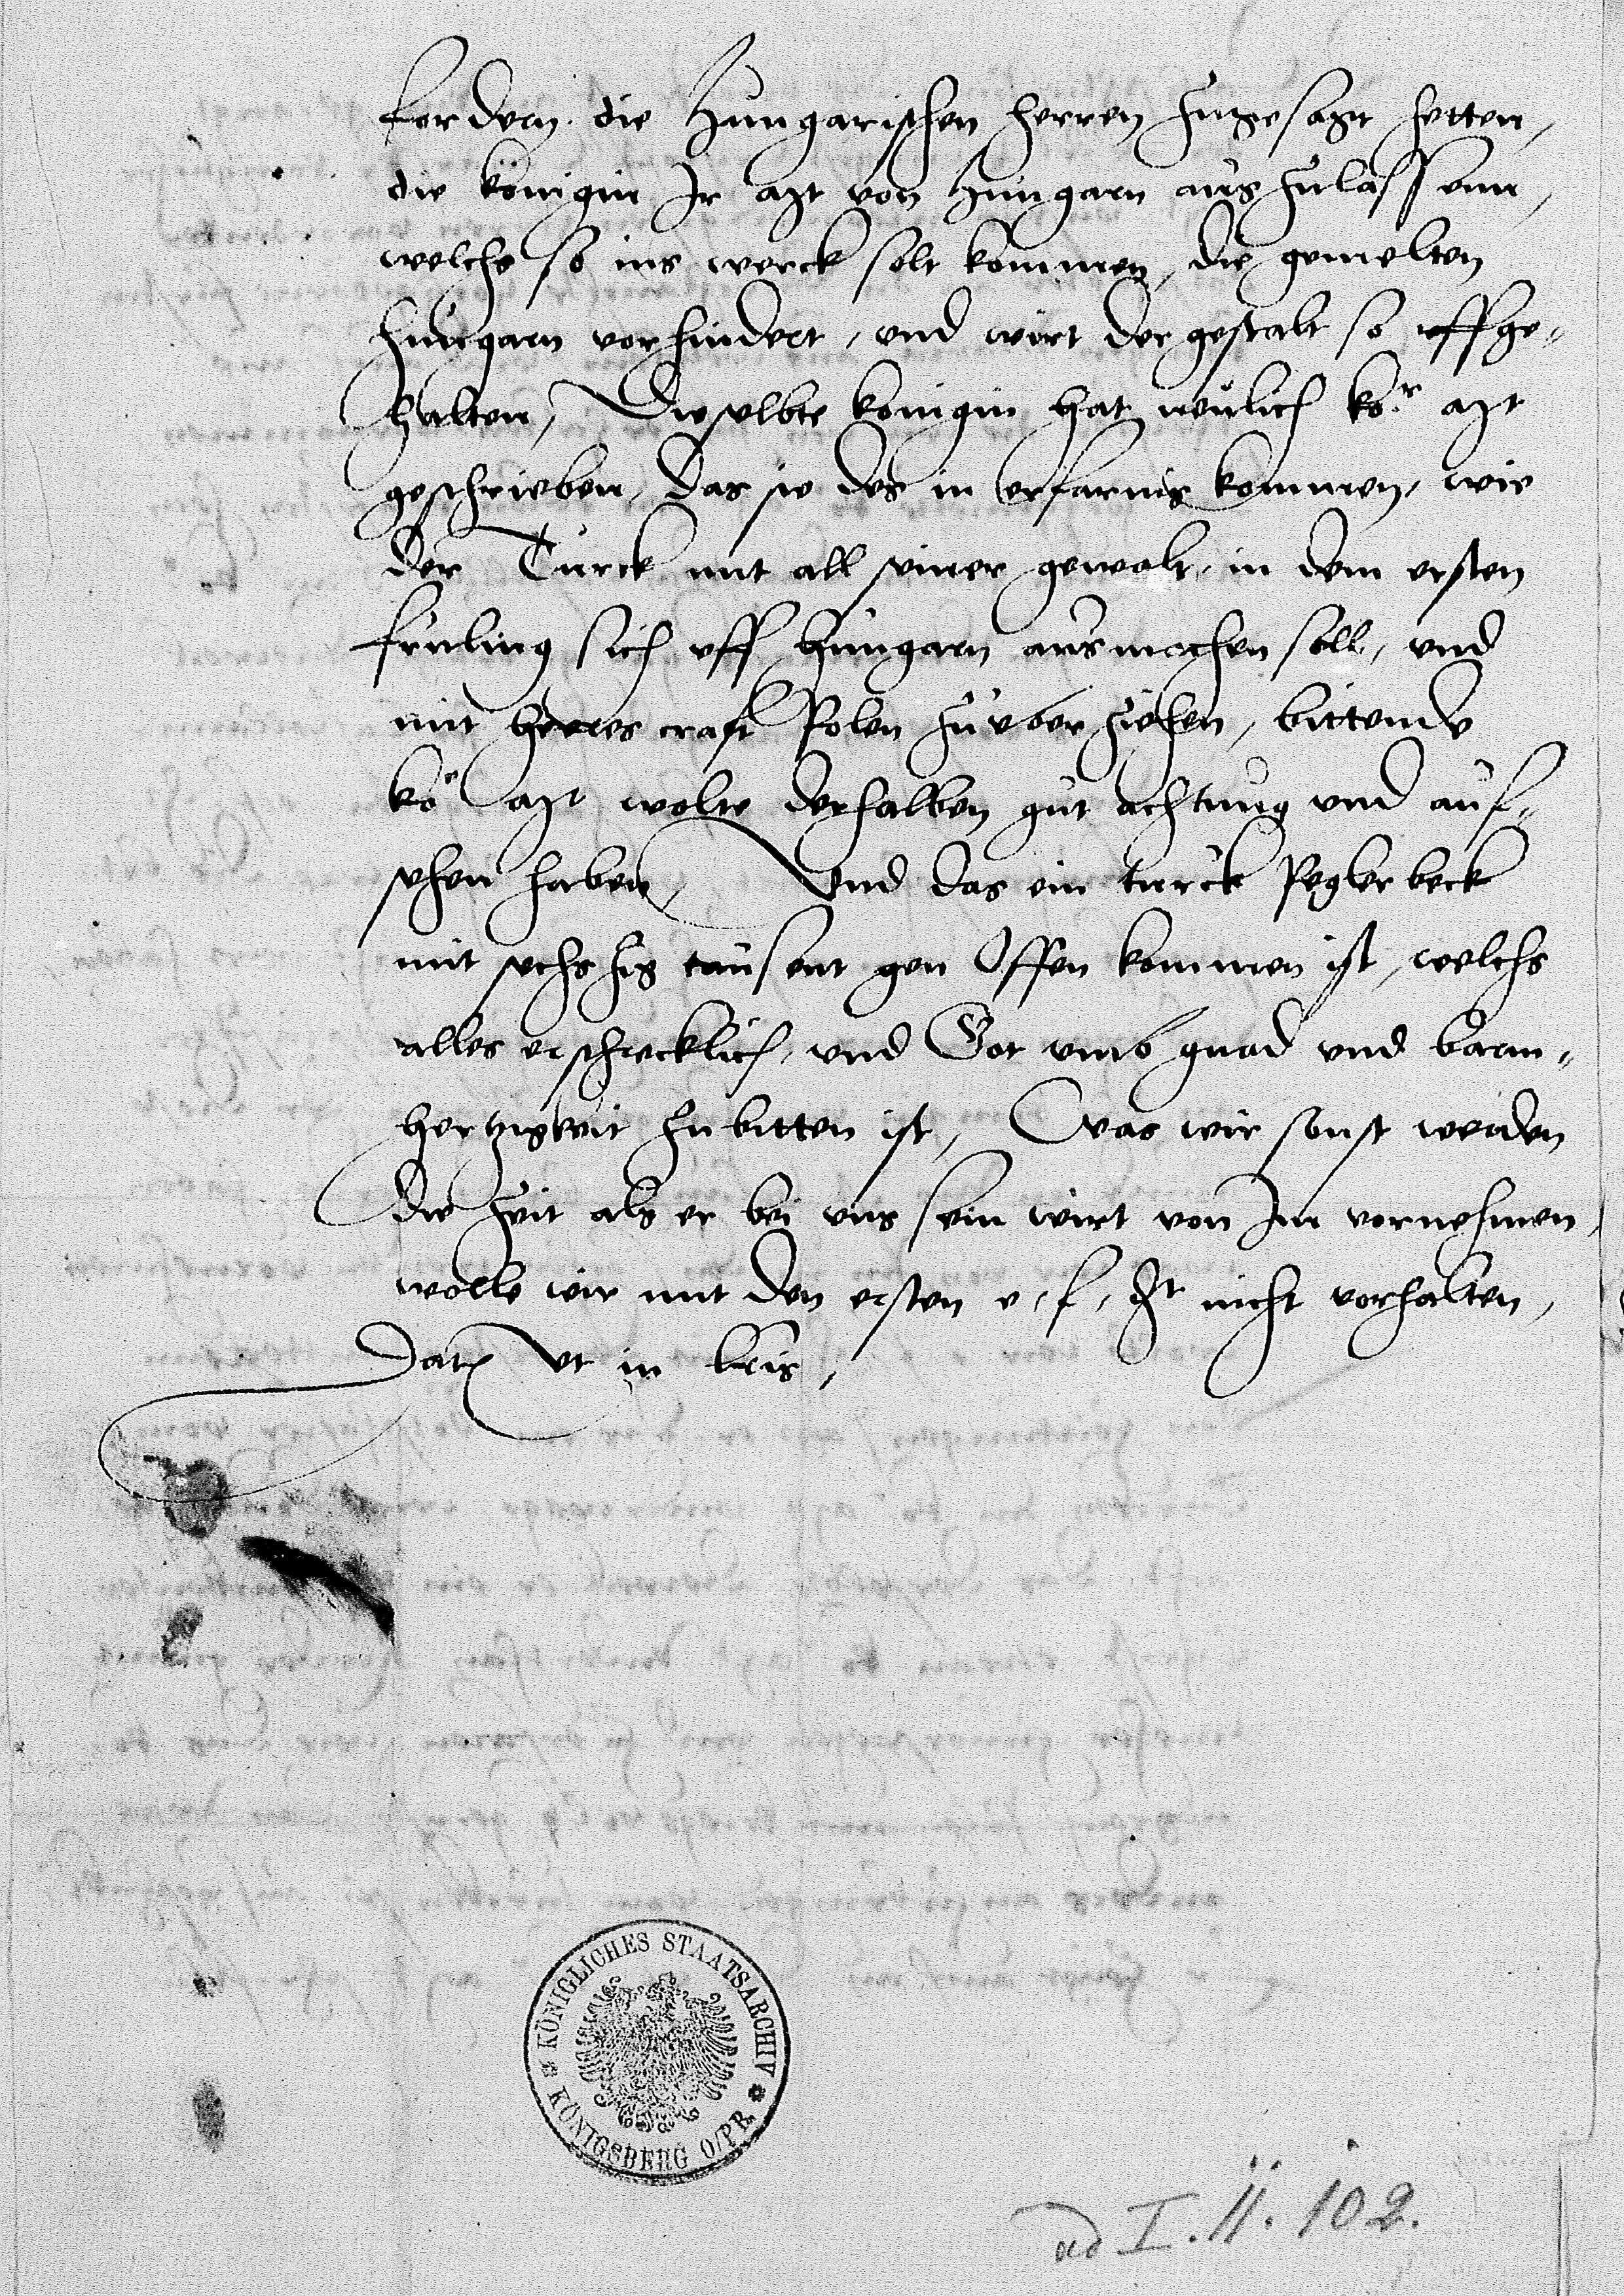 fordern die Hungarischen herren zugesagt hetten,
die königin Ir Mt von Hungarn auszulassenn,
welchs so ins werck solt kommen, die gemelten
Hungarn vorhindert, und wirt der gestalt so uffge-
halten, Dieselbte königin hat neulich kör Mt
geschrieben, das sie des in erfarnis kommen, wie
der Turck mit all seiner gewalt, in dem ersten
fruling sich uff Hungarn ausmachen soll, und
mit heeres craft Polen zuüberziehen, bittende
kör Mt wolte derhalben gut achtung und auf-
sehen haben, Und das ein turck Beglerbeck
mit sechszig tausent gen Offen kommen ist, welchs
alles erschrecklich, und Got umb gnad und barm-
hertzigkeit zubitten ist, Was wir sonst werden
die zeit als er bei uns sein wirt von Im vornehmen,
wolle wir mit den ersten e, f, Dt nicht vorhalten,
Datum Ut in litteris,
KÖNIGLICHES STAATSARCHIV
KÖNIGSBERG O/PR.
ad I. 11. 102.